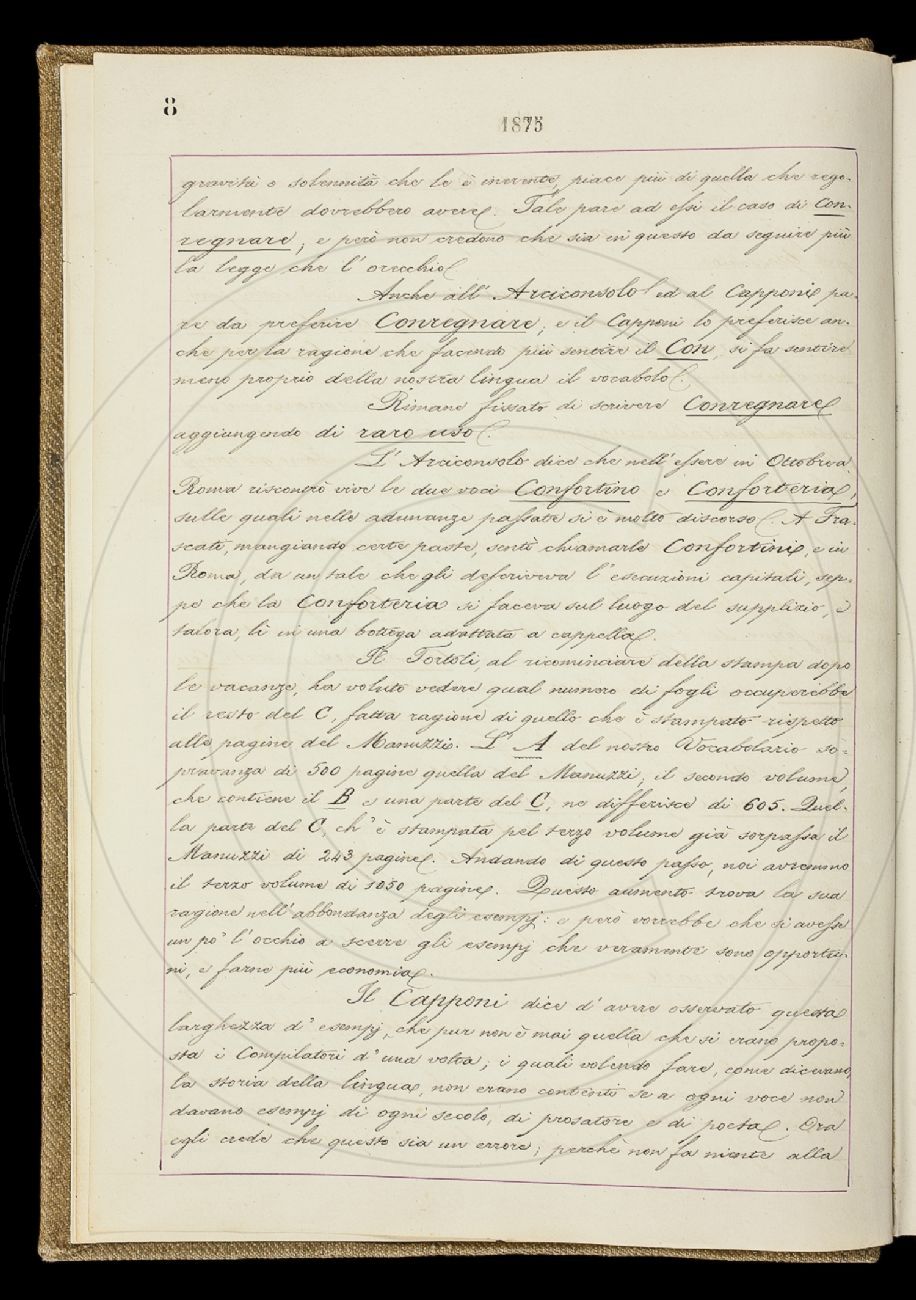 8
1875
gravità e solennità che le è inerente, piace più di quella che rego-
larmente dovrebbero avere. Tale pare ad essi il caso di Con-
regnare; e però non credono che sia in questo da seguire più
la legge che l'orecchio.
Anche all'Arciconsolo ed al Capponi pa-
re da preferire Conregnare; e il Capponi lo preferisce an-
che per la ragione che facendo più sentire il Con, si fa sentire
meno proprio della nostra lingua il vocabolo.
Rimane fissato di scrivere Conregnare
aggiungendo di raro uso.
L'Arciconsolo dice che nell'essere in Ottobre a
Roma riscontrò vive le due voci Confortino e Conforteria,
sulle quali nelle adunanze passate si è molto discorso. A Fra-
scati, mangiando certe paste, sentì chiamarle Confortini, e in
Roma, da un tale che gli descriveva l'esecuzioni capitali, sep-
pe che la Conforteria si faceva sul luogo del supplizio, e
talora, lì in una bottega adattata a cappella.
Il Tortoli, al ricominciare della stampa dopo
le vacanze, ha voluto vedere qual numero di fogli occuperebbe
il resto del C, fatta ragione di quello che è stampato rispetto
alle pagine del Manuzzi. L'A del nostro Vocabolario so-
pravanza di 500 pagine quella del Manuzzi; il secondo volume,
che contiene il B e una parte del C, ne differisce di 605. Quel-
la parte del C ch'è stampata pel terzo volume già sorpassa il
Manuzzi di 243 pagine. Andando di questo passo, noi avremmo
il terzo volume di 1050 pagine. Questo aumento trova la sua
ragione nell'abbondanza degli esempj: e però vorrebbe che si avesse
un po' l'occhio a scerre gli esempj che veramente sono opportu-
ni, e farne più economia.
Il Capponi dice d'avere osservato questa
larghezza d'esempj, che pur non è mai quella che si erano propo-
sta i Compilatori d'una volta; i quali volendo fare, come dicevano,
la storia della lingua, non erano contenti se a ogni voce non
davano esempj di ogni secolo, di prosatore e di poeta. Ora
egli crede che questo sia un errore; perchè non fa niente alla